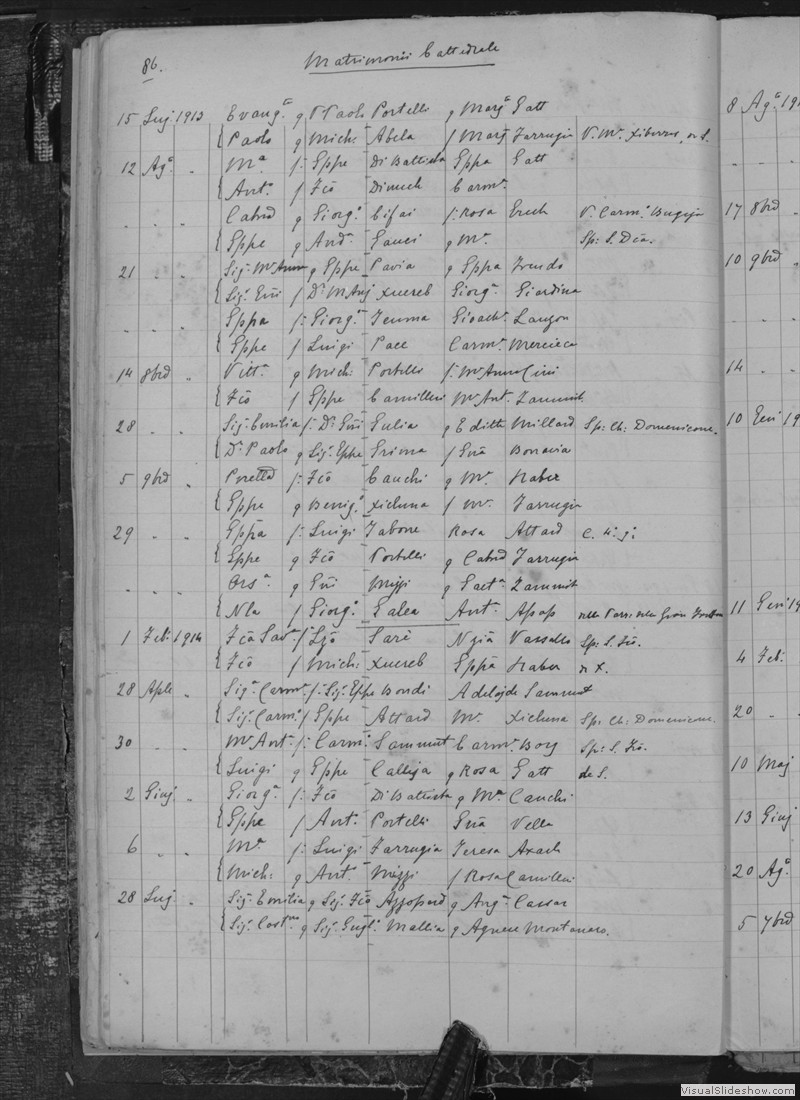 86.
Matrimonii Cattedrale
15 Lug. 1913 Evang.ª q Paolo Portelli q Marg.ª Gatt
{ Paolo q Mich: Abela f Marg. Farrugia V. Mª. Xiberras, or S.
12 Ag.º " Mª f: Gppe Di Battista Gppa Gatt
{ Ant.º f Fcō Dimech Carmª.
" " " Cattd q Giorg.º Cifai f: Rosa Grech V. Carm.º Bugeja
{ Gppe q And.ª Gauci q Mª. Sp: S. Dcō.
21 " " Sig.ª Mª Anna q Gppe Pavia q Gppa Trendo
{ Sig.r Gñi f Dr. M. Ang Xuereb Giorg.ª Giordina
" " " Gppa f: Giorg.º Teuma Gioachª. Lauzon
{ Gppe f Luigi Pace Carmª. Mercieca
14 8brē " Vittª. q Mich: Portelli f: Mª Anna Cini
{ Fcō f Gppe Camilleri Mª Ant. Zammit
28 " " Sig.ª Emilia f: Dr. Gñi Gulia q Edith Millard Sp: Ch: Domenicane.
{ Dr. Paolo q Sig. Gppe Grima f Gñā Bonavia
5 9brē " f: Fcō Cauchi q Mª. Haber
{ Gppe q Benig.º Xicluna f Mª. Farrugia
29 " " Gppa f: Luigi Tabone Rosa Attard
{ Gppe q Fcō Portelli q Cattd Farrugia
" " " Orsª. q Gñi Mizzi q Gaetª Zammit
{ Nla f Giorg.º Galea Ant.ª Apap
1 Feb. 1914 Fcā Savª f Lzō Sarè Nzia Vassallo Sp: S. Fcō.
{ Fcō f Mich: Xuereb Gppa Haber
28 Aple " Sig.ª Carmª. f: Sig. Gppe Bondi Adelaide Sammut
{ Sig. Carm.º f Gppe Attard Mª. Xicluna Sp: Ch: Domenicane.
30 " " Mª Antª. f: Carm.º Sammut Carmª. Borg Sp: S. Fcō.
{ Luigi q Gppe Calleja q Rosa Gatt de S.
2 Giug. " Giorg.ª f: Fcō Di Battista q Mª Cauchi
{ Gppe f Ant.º Portelli Gñā Vella
6 " " Mª. f: Luigi Farrugia Teresa Axach
{ Mich: q Ant.º Mizzi f Rosa Camilleri
28 Lug " Sig.ª Emilia q Sig. Fcō Azzopard q Ang.ª Cassar
{ Sig. Costno q Sig. Gugl.º Mallia q Agnese Montanaro.
8 Ag.º 191
" "
17 8brē
10 9brē "
" "
14 "
10 Gen 19
11 Gen 19
4 Feb.
20 " "
10 Mag
13 Giug
20 Ag.º
5 7brē
VisualSlideshow.com